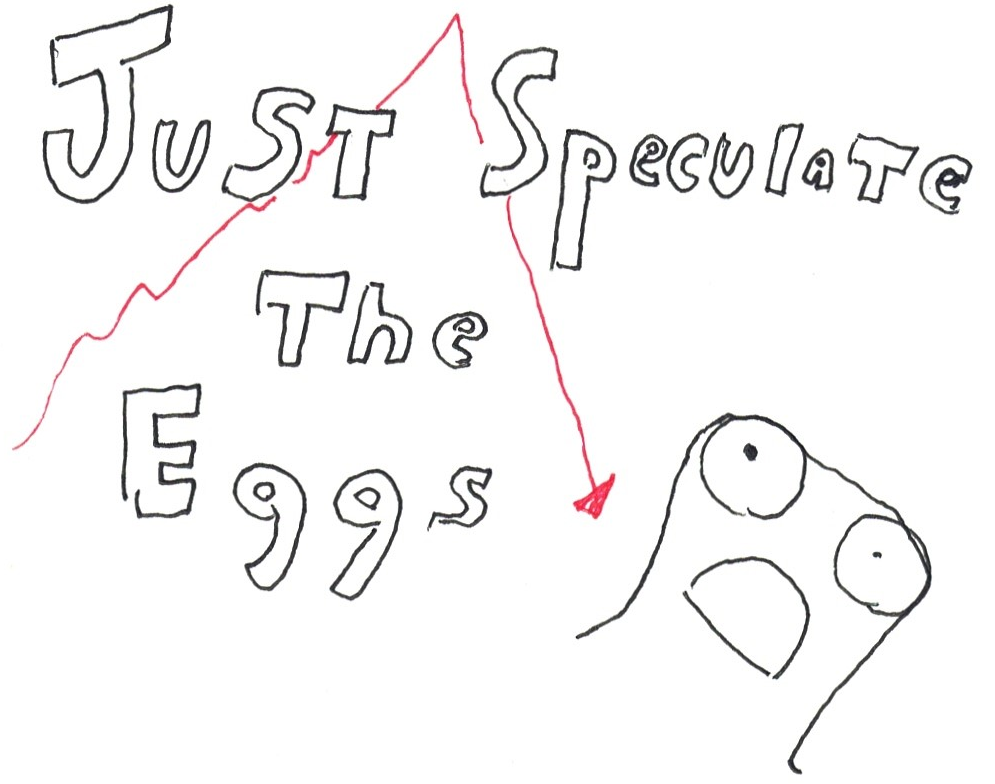 Just Speculate
The
Eggs